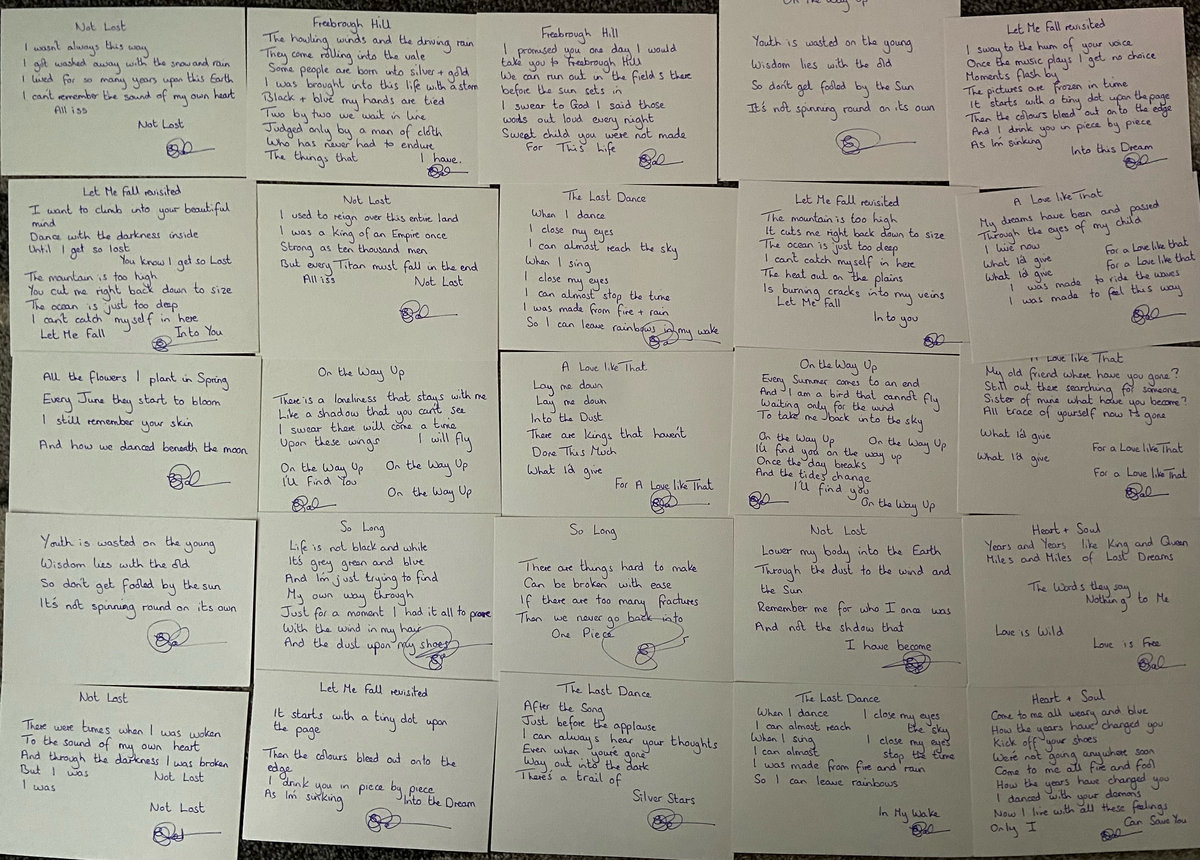 Not Lost
I wasn't always this way
I got washed away with the snow and rain
I lived for so many years upon this Earth
I can't remember the sound of my own heart
All iss
Not Lost
Freebrough Hill
The howling winds and the driving rain
They come rolling into the vale
Some people are born into silver + gold
I was brought into this life with a storm
Black + blue my hands are tied
Two by two we wait in line
Judged only by a man of cloth
Who has never had to endure
The things that I have.
Freebrough Hill
I promised you one day I would
take you to Freebrough Hill
We can run out in the fields there
before the sun sets in
I swear to God I said those
words out loud every night
Sweet child you were not made
For This Life
On the Way Up
Youth is wasted on the young
Wisdom lies with the old
So don't get fooled by the Sun
It's not spinning round on its own
Let Me Fall revisited
I sway to the hum of your voice
Once the music plays I get no choice
Moments flash by
The pictures are frozen in time
It starts with a tiny dot upon the page
Then the colours bleed out onto the edge
And I drink you in piece by piece
As I'm sinking Into this Dream
Let Me Fall revisited
I want to climb into your beautiful
mind
Dance with the darkness inside
Until I get so lost
You know I get so Lost
The mountain is too high
You cut me right back down to size
The ocean is just too deep
I can't catch myself in here
Let Me Fall Into You
Not Lost
I used to reign over this entire land
I was a King of an Empire once
Strong as ten thousand men
But every Titan must fall in the end
All iss Not Lost
The Last Dance
When I dance
I close my eyes
I can almost reach the sky
When I sing
I close my eyes
I can almost stop the time
I was made from fire + rain
So I can leave rainbows in my wake
Let Me Fall revisited
The mountain is too high
It cuts me right back down to size
The ocean is just too deep
I can't catch myself in here
The heat out on the plains
Is burning cracks into my veins
Let Me Fall
Into you
A Love like That
My dreams have been and passed
Through the eyes of my child
I live now For a Love like that
What I'd give For a Love like that
What I'd give
I was made to ride the waves
I was made to feel this way
All the flowers I plant in Spring
Every June they start to bloom
I still remember your skin
And how we danced beneath the moon
On the Way Up
There is a loneliness that stays with me
Like a shadow that you can't see
I swear there will come a time
Upon these wings I will fly
On the Way Up On the Way Up
I'll Find You
On the Way Up
A Love like That
Lay me down
Lay me down
Into the Dust
There are Kings that haven't
Done This Much
What I'd give
For A Love like That
On the Way Up
Every Summer comes to an end
And I am a bird that cannot fly
Waiting only for the wind
To take me back into the sky
On the Way Up On the Way Up
I'll find you on the way up
Once the day breaks
And the tides change
I'll find you
On the Way Up
A Love like That
My old friend where have you gone?
Still out there searching for someone
Sister of mine what have you become?
All trace of yourself now is gone
What I'd give
For a Love like That
What I'd give
For a Love like That
Youth is wasted on the young
Wisdom lies with the old
So don't get fooled by the sun
It's not spinning round on its own
So Long
Life is not black and white
It's grey green and blue
And I'm just trying to find
My own way through
Just for a moment I had it all to prove
With the wind in my hair
And the dust upon my shoes
So Long
There are things hard to make
Can be broken with ease
If there are too many fractures
Then we never go back into
One Piece
Not Lost
Lower my body into the Earth
Through the dust to the wind and
the Sun
Remember me for who I once was
And not the shdow that
I have become
Heart + Soul
Years and Years like King and Queen
Miles and Miles of Lost Dreams
The Words they say
Nothing to Me
Love is Wild
Love is Free
Not Lost
There were times when I was woken
To the sound of my own heart
And through the darkness I was broken
But I was Not Lost
I was
Not Lost
Let Me Fall revisited
It starts with a tiny dot upon
the page
Then the colours bleed out onto the
edge
I drink you in piece by piece
As I'm sinking Into the Dream
The Last Dance
After the Song
Just before the applause
I can always hear your thoughts
Even when you're gone
Way out into the dark
There's a trail of
Silver Stars
The Last Dance
When I dance I close my eyes
I can almost reach the sky
When I sing I close my eyes
I can almost stop the time
I was made from fire and rain
So I can leave rainbows
In My Wake
Heart + Soul
Come to me all weary and blue
How the years have changed you
Kick off your shoes
We're not going anywhere soon
Come to me all fire and fool
How the years have changed you
I danced with your demons
Now I live with all these feelings
Only I Can Save You